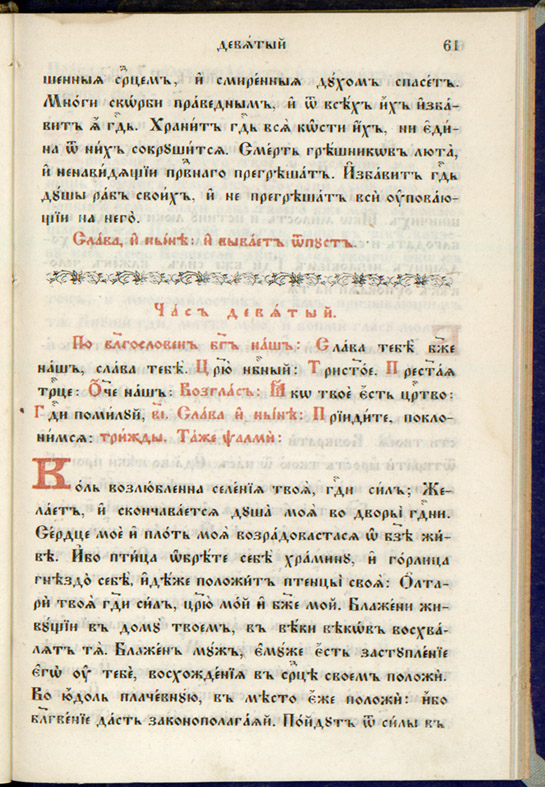 девѧ́тый 61
шенныѧ ср҃цемъ, и҆ смире́нныѧ дꙋ́хомъ спасе́тъ.
Мнѡ́ги скѡ́рби пра́ведныхъ, и҆ ѿ всѣ́хъ и҆́хъ и҆зба́-
витъ ѧ҆̀ гд҇ь. Храни́тъ гд҇ь всѧ̑ кѡ́сти и҆́хъ, ни є҆ди́-
на ѿ ни́хъ сокрꙋши́тсѧ. Сме́рть грѣ́шникѡвъ люта̀,
и҆ ненави́дѧщїи првⷣнаго прегрѣша́тъ. И҆зба́витъ гд҇ь
дꙋ́шы ра̑бъ свои́хъ, и҆ не прегрѣша́тъ всѝ ᲂу҆пова́ю-
щїи на него̀.
Сла́ва, и҆ ны́нѣ: и҆ быва́етъ ѿпꙋ́стъ.
Ча́съ девѧ́тый.
По бл҃гослове́нъ бг҃ъ на́шъ: Сла́ва тебѣ̀ бж҃е
на́шъ, сла́ва тебѣ̀. Цр҃ю̀ нбⷭ҇ный: Трист҃о́е. Прест҃а́ѧ
трⷪ҇це: Ѻ҆́ч҃е на́шъ: Возгла́съ: Ꙗ҆́кѡ твоѐ є҆́сть црⷭ҇тво:
Гдⷭ҇и поми́лꙋй, в҃і. Сла́ва и҆ ны́нѣ: Прїиди́те, покло-
ни́мсѧ: три́жды. Та́же ѱалмѝ:
Ко́ль возлю́бленна селє́нїѧ твоѧ̑, гдⷭ҇и си́лъ; Же-
ла́етъ, и҆ скончава́етсѧ дꙋша̀ моѧ̀ во дворы̀ гдⷭ҇ни.
Се́рдце моѐ и҆ пло́ть моѧ̀ возра́довастасѧ ѡ҆ бз҃ѣ жи́-
вѣ. И҆́бо пти́ца ѡ҆брѣ́те себѣ̀ хра́минꙋ, и҆ го́рлица
гнѣздо̀ себѣ̀, и҆дѣ́же положи́тъ птенцы̀ своѧ̑: Ѻ҆лта-
рѝ твоѧ̑ гдⷭ҇и си́лъ, цр҃ю̀ мо́й и҆ бж҃е мо́й. Блаже́ни жи-
вꙋ́щїи въ домꙋ̀ твое́мъ, въ вѣ́ки вѣкѡ́въ восхва́-
лѧтъ тѧ̀. Блаже́нъ мꙋ́жъ, є҆мꙋ́же є҆́сть застꙋпле́нїе
є҆гѡ̀ ᲂу҆ тебє̀, восхождє́нїѧ въ срⷣцѣ свое́мъ положѝ.
Во ю҆до́ль плаче́внꙋю, въ мѣ́сто є҆́же положѝ: и҆́бо
блг҇ве́нїе да́стъ законополага́ѧй. По́йдꙋтъ ѿ си́лы въ